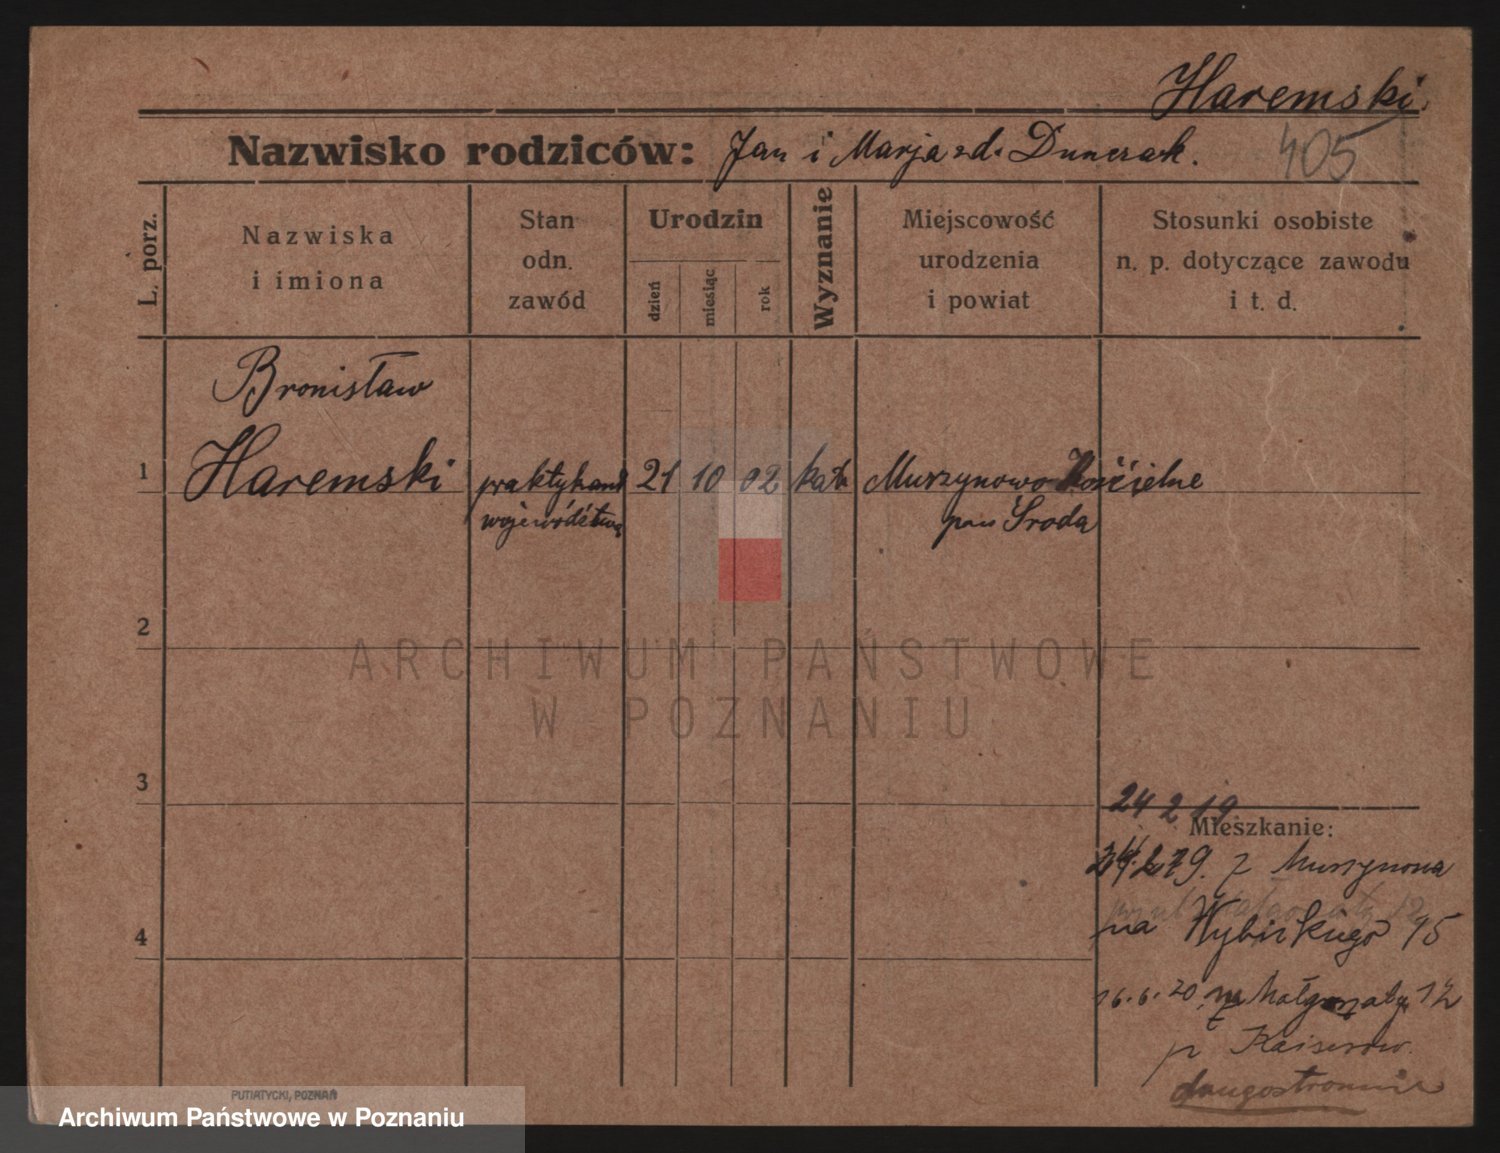 Haremski.
Nazwisko rodziców: Jan i Marja zd. Dunczak.
405
L. porz.
Nazwiska
i imiona
Stan
odn.
zawód
Urodzin
dzień
miesiąc
rok
Wyznanie
Miejscowość
urodzenia
i powiat
Stosunki osobiste
n. p. dotyczące zawodu
i t. d.
Bronisław
1 Haremski praktykant 21 10 02 kat. Murzynowo Kościelne
województwa pow Środa
2
ARCHIWUM PAŃSTWOWE
W POZNANIU
3
24 2 19
Mieszkanie:
24.2.19. z Murzynowa
4
na Wybickiego 15
16.6.20 na Małgorzaty 12
p Kaiserów.
drugostronnie
PUTIATYCKI, POZNAŃ
Archiwum Państwowe w Poznaniu